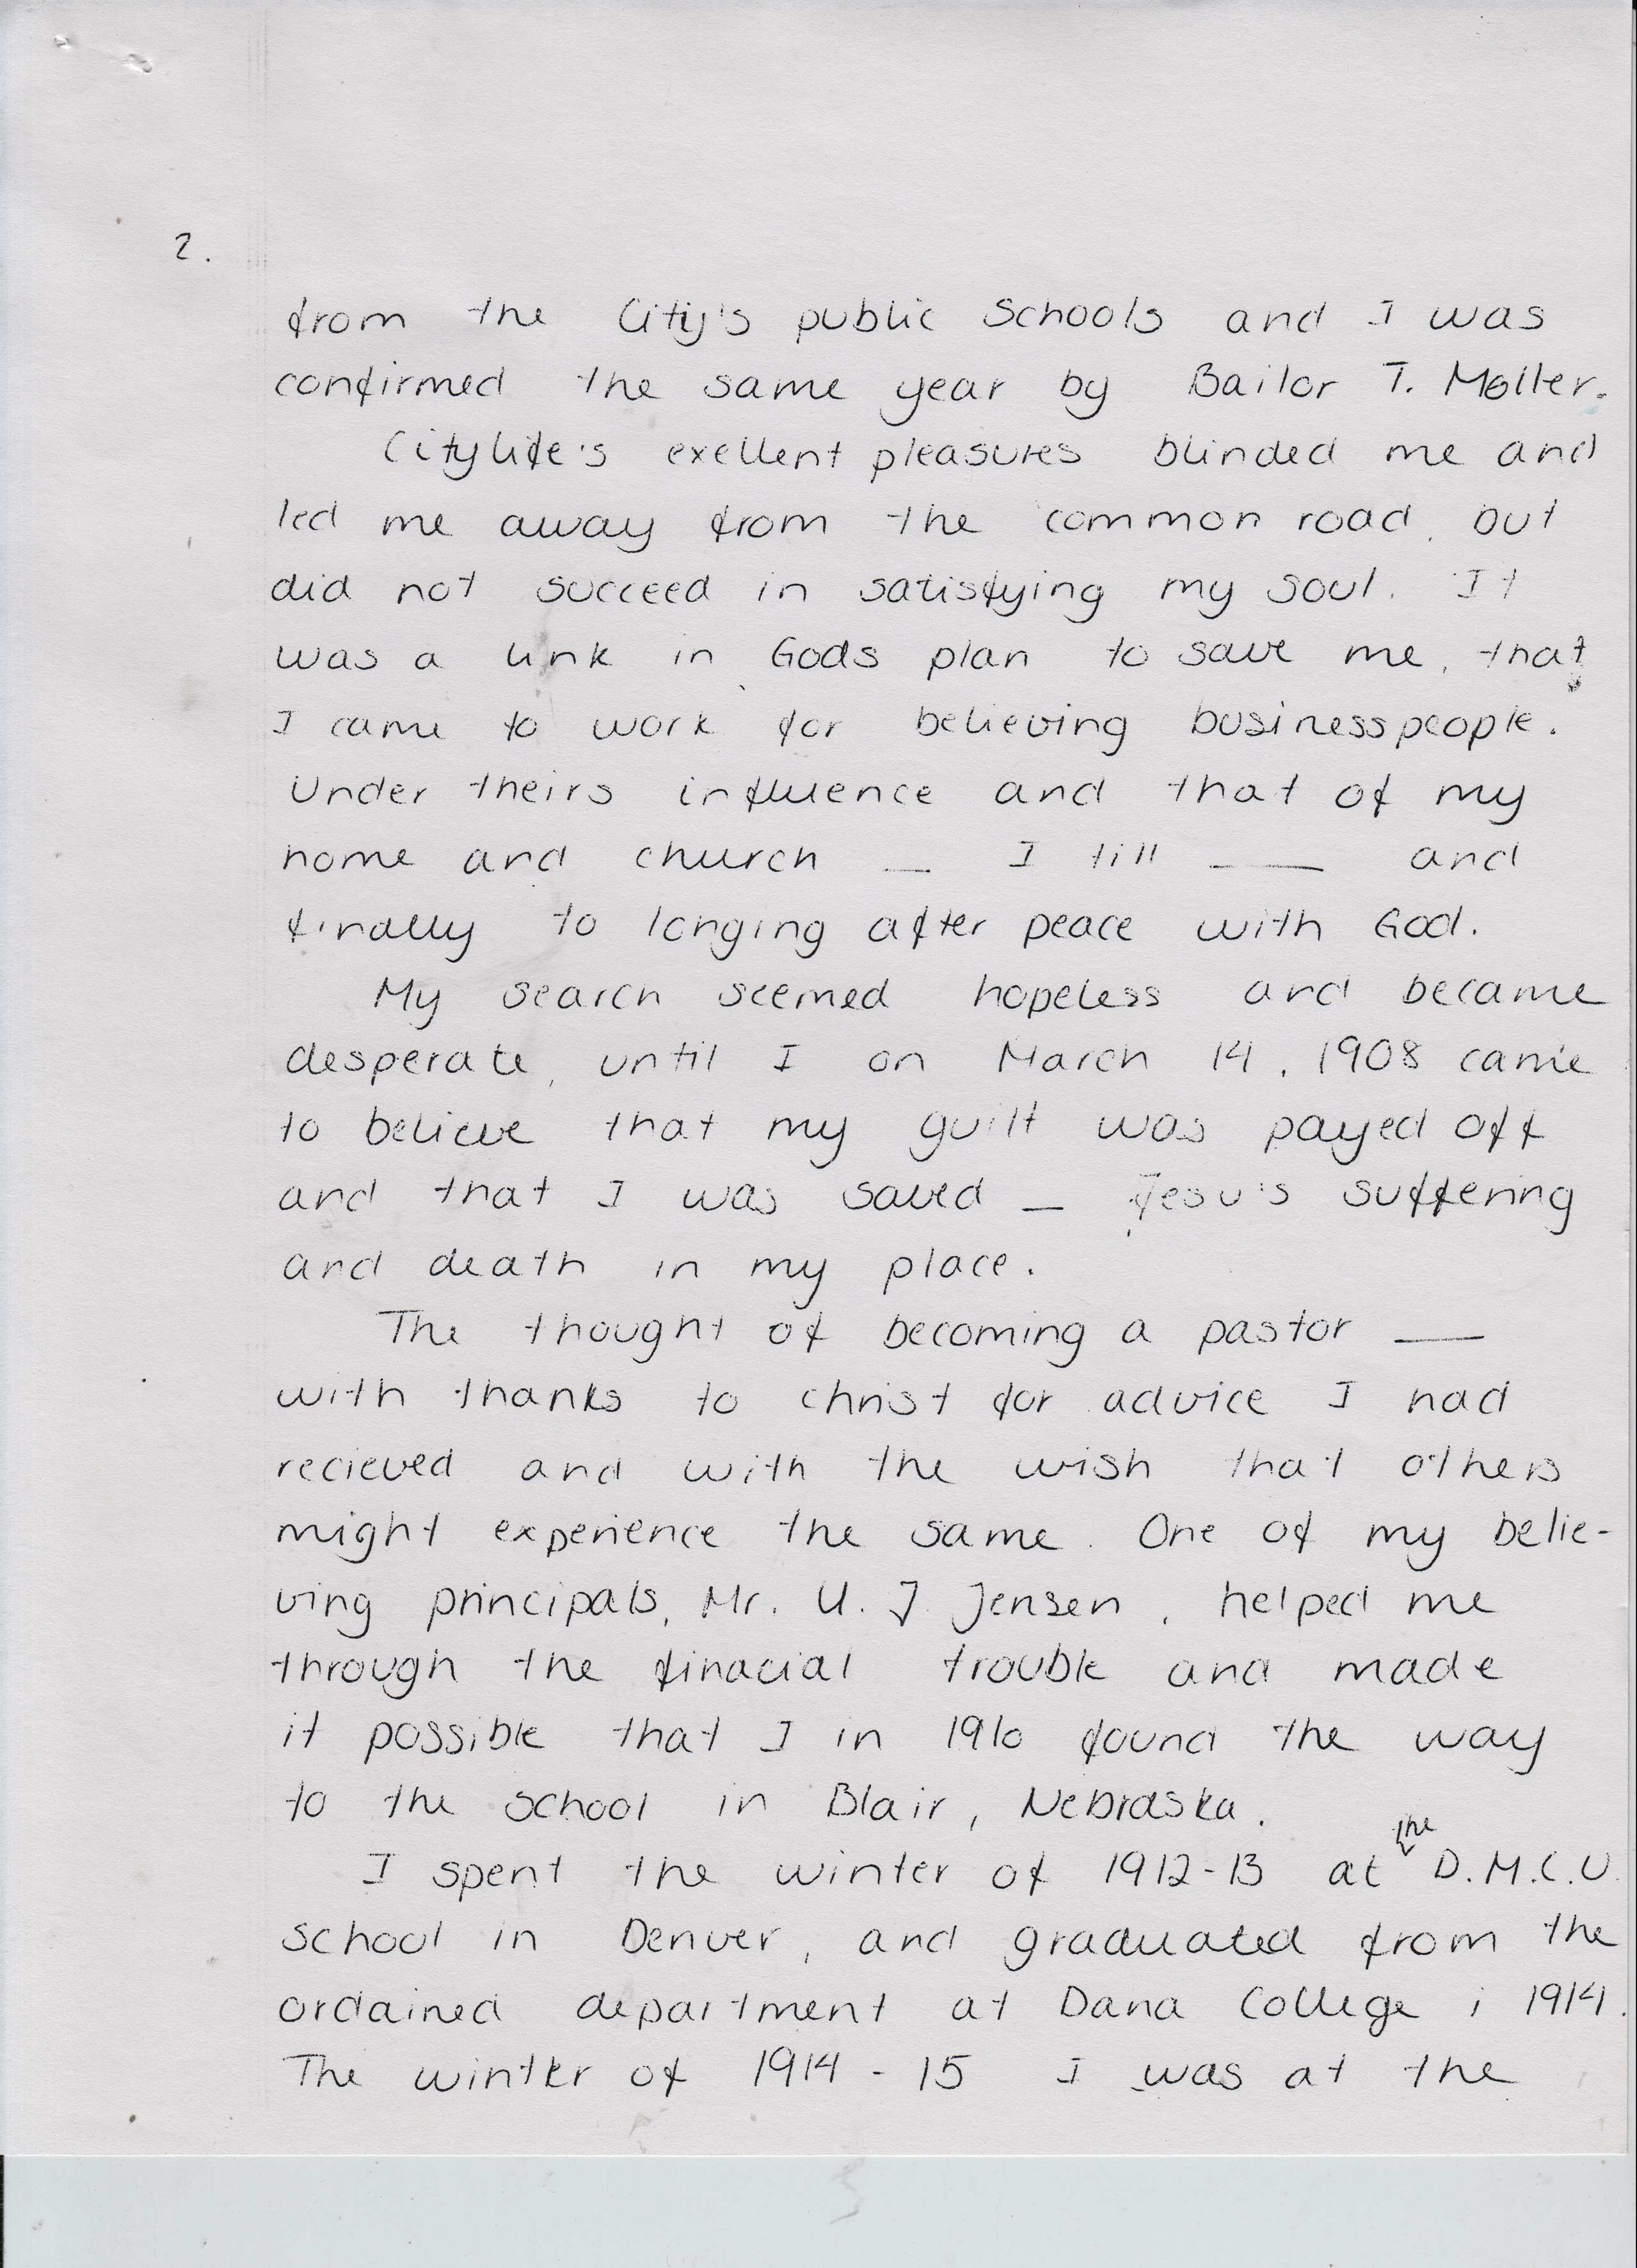 2.
from the City's public Schools and I was
confirmed the same year by Bailor T. Møller.
Citylife's exellent pleasures blinded me and
led me away from the common road, but
did not succeed in satisfying my soul. It
was a link in Gods plan to save me, that
I came to work for believing businesspeople.
Under theirs influence and that of my
home and church _ I till __ and
finally to longing after peace with God.
My search seemed hopeless and became
desperate, until I on March 14, 1908 came
to believe that my guilt was payed off
and that I was saved _ Jesu's suffering
and death in my place.
The thought of becoming a pastor __
with thanks to christ for advice I had
recieved and with the wish that others
might experience the same. One of my belie-
ving principals, Mr. U. J. Jensen, helped me
through the finacial trouble and made
it possible that I in 1910 found the way
to the school in Blair, Nebraska.
I spent the winter of 1912-13 at the D.M.C.U.
school in Denver, and graduated from the
ordained department at Dana College i 1914.
The winter of 1914 - 15 I was at the
3